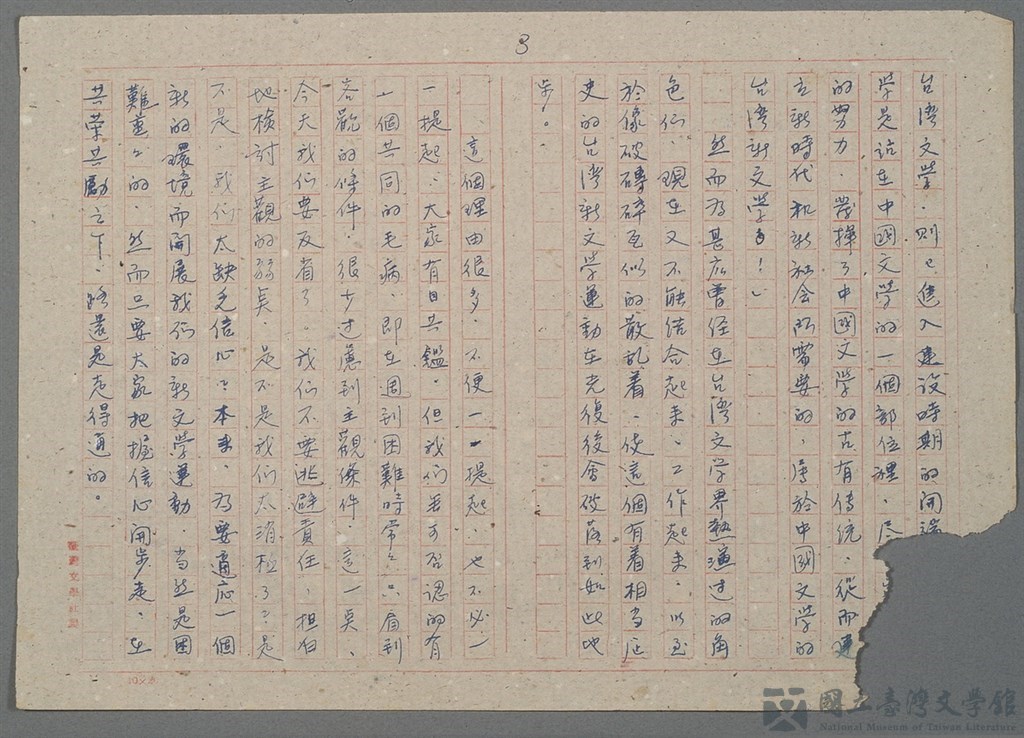 3
台湾文学，则已進入建設時期的開端
学是站在中國文学的一個部位裡，尽
的努力，發揮了中國文学的古有傳统，從而建
立新時代和新社会所需要的，屬於中國文学的
台湾新文学！」
然而為甚広曾经在台湾文学界熱運过的角
色们，現在又不能结合起来、工作起来，以至
於像破磚碎瓦似的散乱着，使這個有着相当歴
史的台湾新文学運動在光復後會破落到如此地
步。
這個理由很多，不便一一提起，也不必一
一提起，大家有目共鑑。但我们無可否認的有
一個共同的毛病，即在週到困難時常々只看到
客觀的條件，很少过慮到主觀條件，這一奌，
今天我们要反省了，我们不要逃避責任，担白
地檢討主觀的弱奌，是不是我们太消極了？是
不是，我们太缺乏信心？本来，為要適応一個
新的環境而開展我们的新文学運動，当然是困
難重々的，然而只要大家把握信心開步走，在
共荣共勵之下，路還是走得通的。
10×20
國立臺灣文學館
National Museum of Taiwan Literature